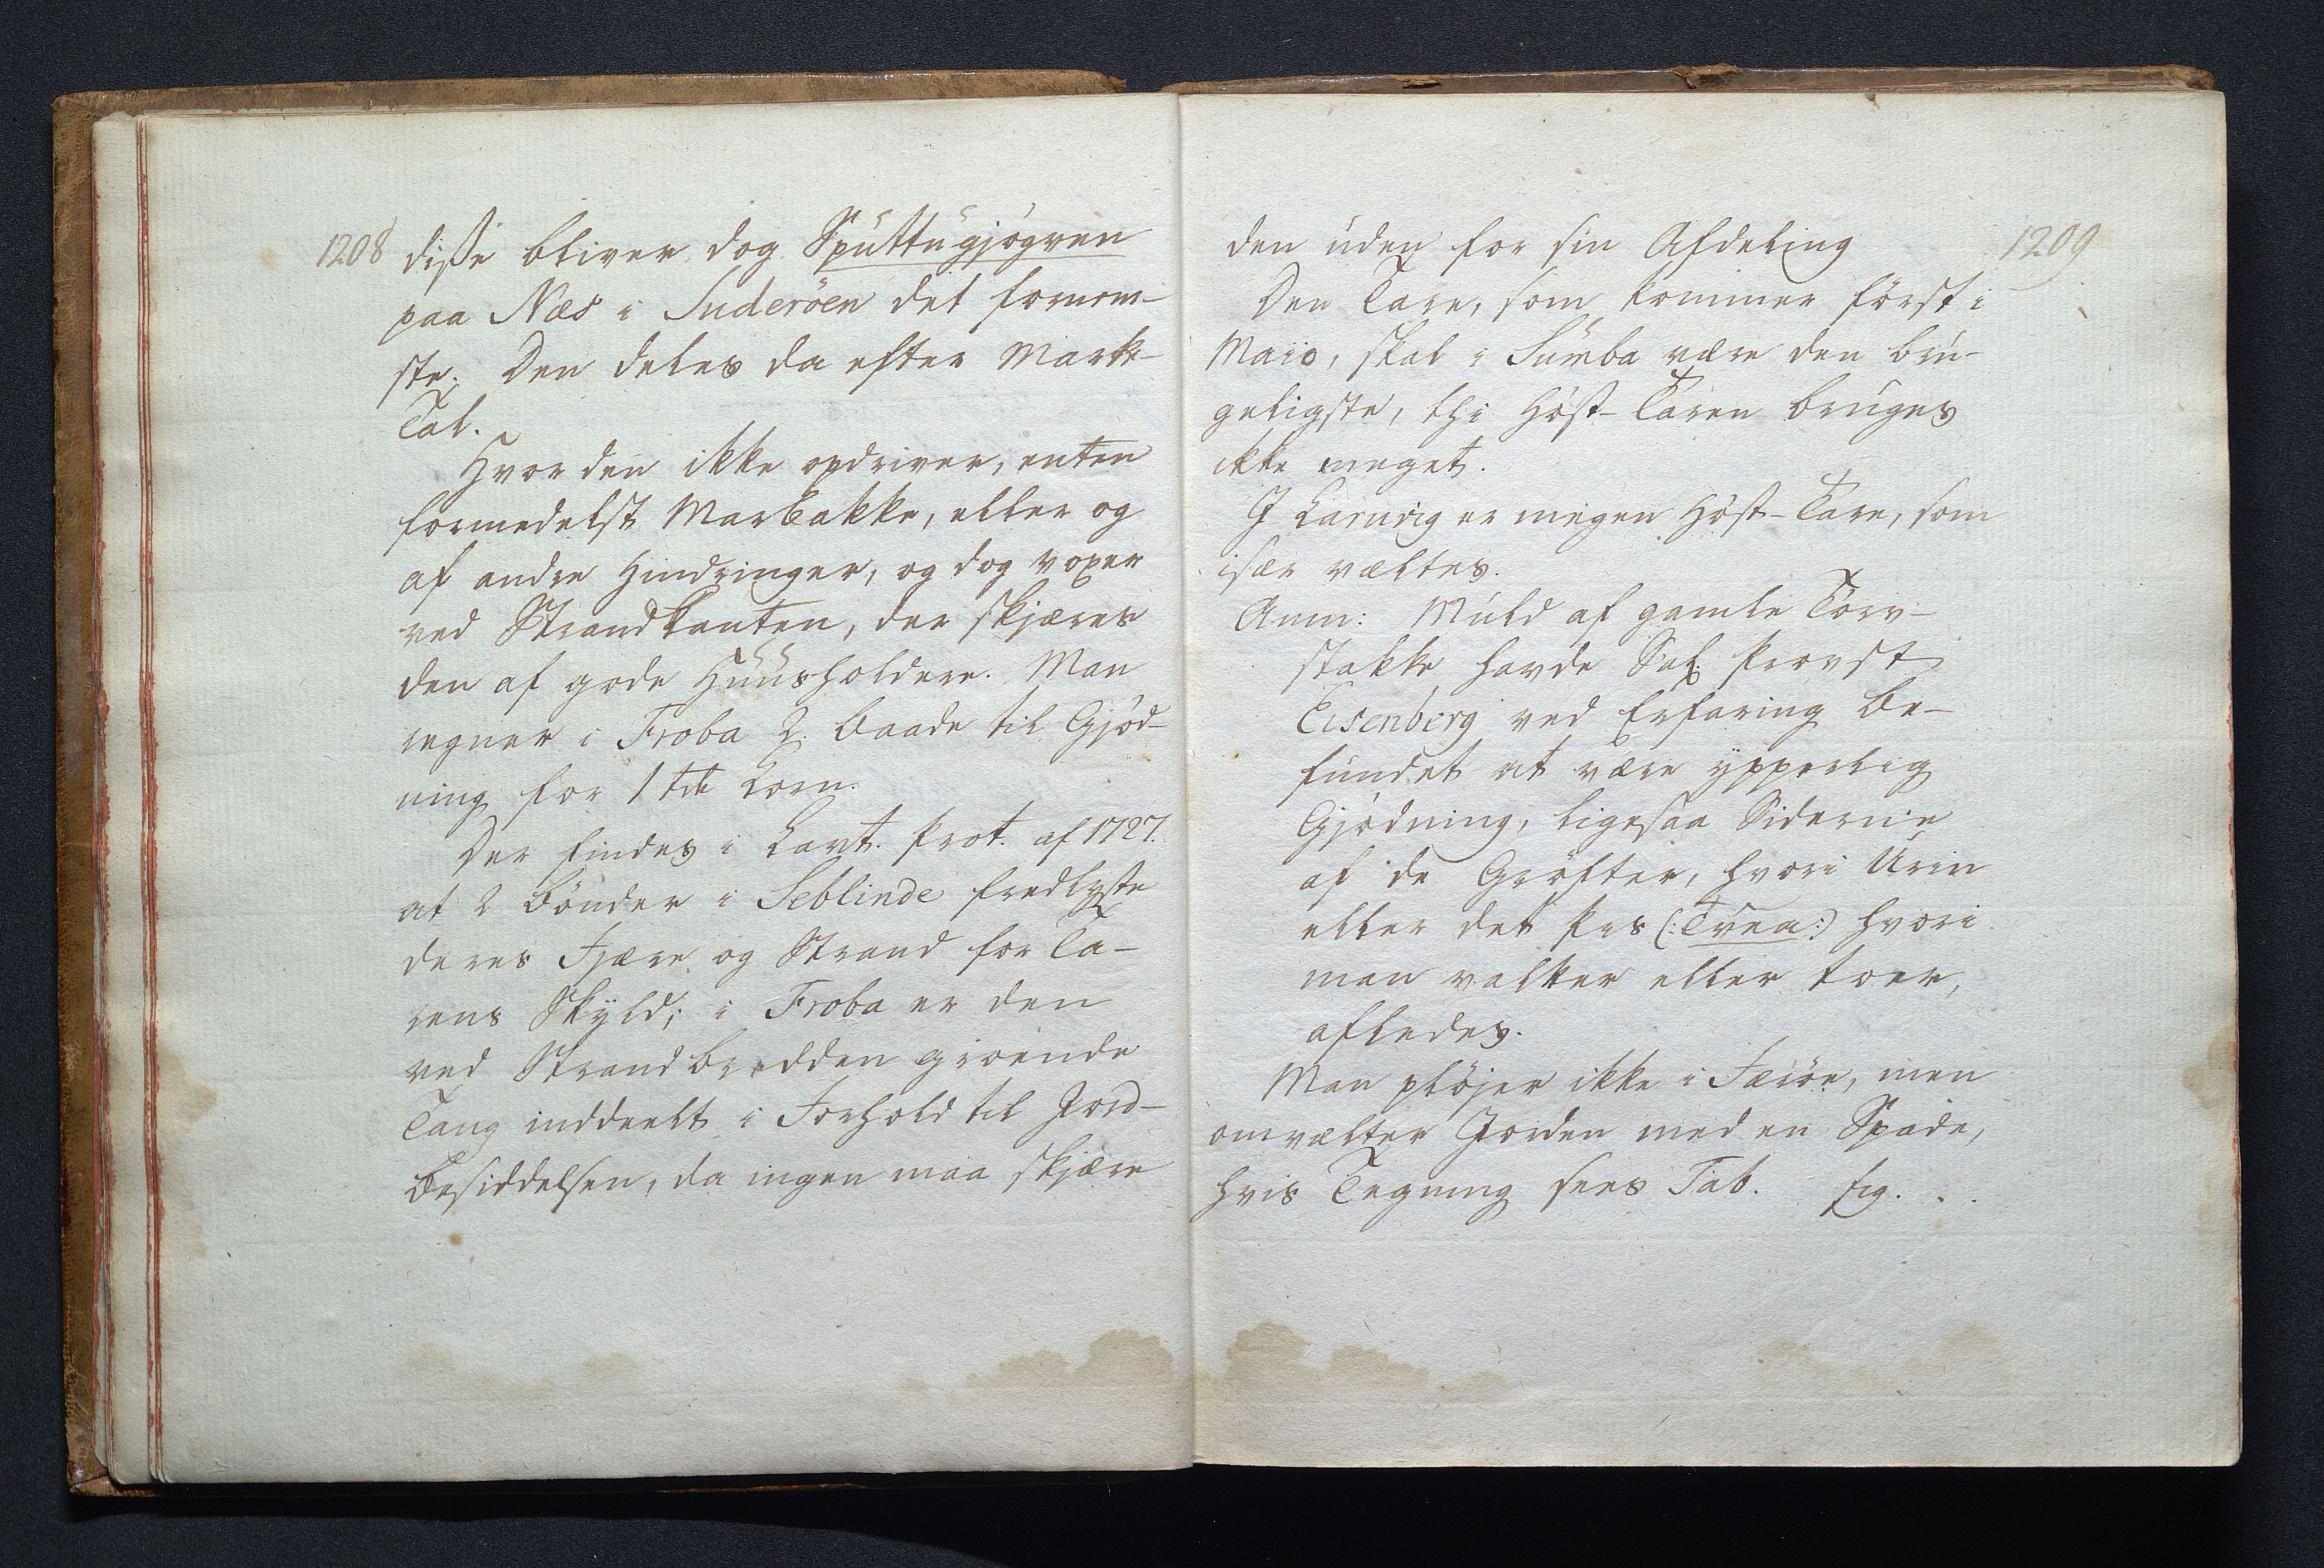 1208
diſse bliver dog Sputtugjógven
paa Næs i Suderöen det fornem-
ste. Den deles da efter Mark-
Tal.
Hvor den ikke opdriver, enten
formedelst Marbakke, eller og
af andre Hindringer, og dog voxer
ved Strandkanten, der skjæres
den af gode Huusholdere. Man
regner i Froba 2 Baade til Gjød-
ning for 1 tde Korn.
Der findes i Lavt. Prot. af 1727.
at 2 Bønder i Seblinde fredlyste
deres Fjære og Strand for Ta-
rens Skyld; i Froba er den
ved Strandbredden groende
Tang inddeelt i Forhold til Jord-
besiddelsen, da ingen maa skjære
1209
den uden for sin Afdeling
Den Tare, som kommer først i
Maio, skal i Sumba være den bru-
geligste, thi Høst-Taren bruges
ikke meget.
I Larvig er megen Høst-Tare, som
især væltes.
Anm: Muld af gamle Törv-
stakke havde Sal. Provst
Eisenberg ved Erfaring be-
fundet at være ypperlig
Gjødning, ligesaa Siderne
af de Grøfter, hvori Urin
eller det Pis (: Tvea :) hvori
man valker eller toer,
afledes.
Man pløjer ikke i Færøe, men
omvælter Jorden med en Spade,
hvis Tegning sees Tab. fig. . .